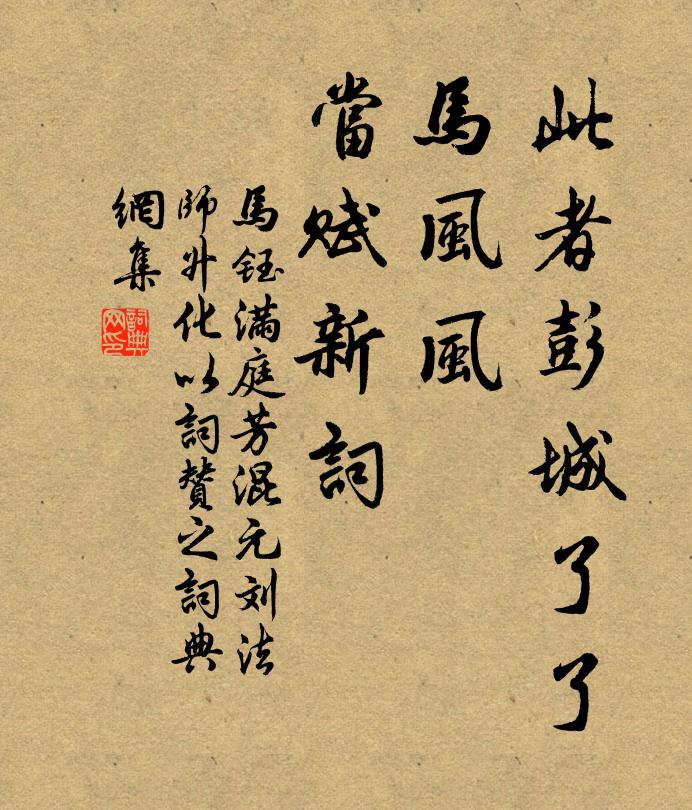 此者彭城了了
馬風風
當賦新詞
馬鈺滿庭芳混元刘法
師升化以詞贊之詞典
網集
詞典
网印